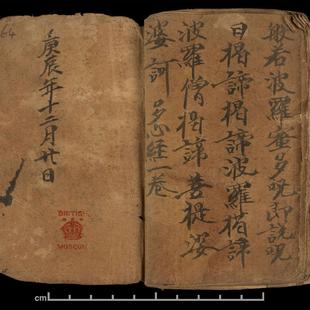 般若波羅蜜多呪即説呪
曰揭諦揭諦波羅揭諦
波羅僧揭諦菩提娑
婆訶 多心経一卷
庚辰年十二月廿日
64
BRITISH
MUSEUM
cm